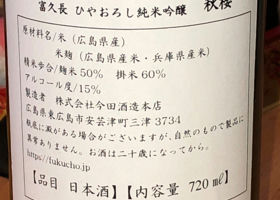 富久長 ひやおろし純米吟醸 秋櫻
原材料名/米(広島県産)
米麹(広島県産米・兵庫県産米)
精米歩合/麹米50% 掛米60%
アルコール度/15%
製造者 株式会社今田酒造本店
広島県東広島市安芸津町三津 3734
瓶底に澱がある場合がございますが、自然のもので製品に
異常ありません。お酒は二十歳になってから。
https://fukucho.jp
【品目 日本酒】【内容量 720㎖】